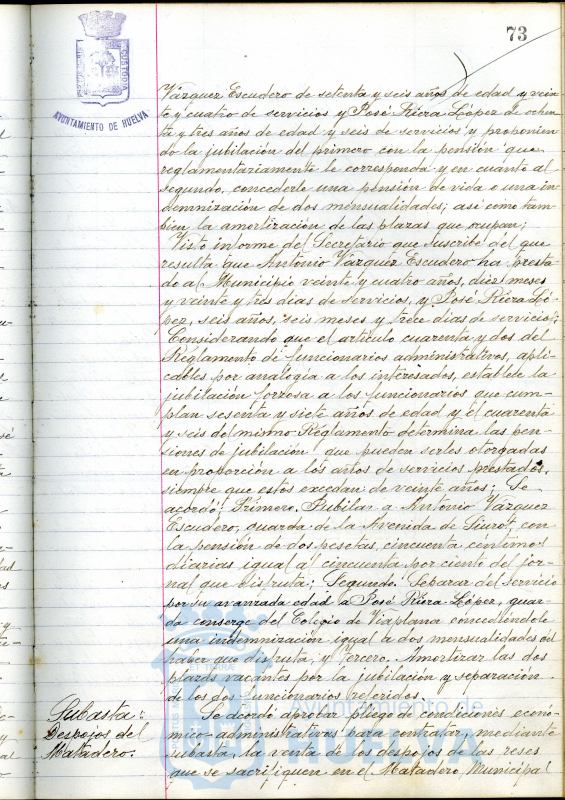 73
AYUNTAMIENTO DE HUELVA
Vázquez Escudero de setenta y seis años de edad y vein-
te y cuatro de servicios y José Riera López de ochen-
ta y tres años de edad y seis de servicios y proponien-
do la jubilación del primero con la pensión que
reglamentariamente le corresponda y en cuanto al
segundo, concederle una pensión de vida o una in-
demnización de dos mensualidades; así como tam-
bien la amortización de las plazas que ocupan;
Visto informe del Secretario que suscribe del que
resulta que Antonio Vázquez Escudero ha presta-
do al Municipio veinte y cuatro años, diez meses
y veinte y tres días de servicios, y José Riera Ló-
pez, seis años, seis meses y trece días de servicios;
Considerando que el artículo cuarenta y dos del
Reglamento de funcionarios administrativos, apli-
cables por analogía a los interesados, establece la
jubilación forzosa a los funcionarios que cum-
plan sesenta y siete años de edad y el cuarenta
y seis del mismo Reglamento determina las pen-
siones de jubilación que pueden serles otorgadas
en proporción a los años de servicios prestados,
siempre que estos excedan de veinte años; Se
acordó: Primero. Jubilar a Antonio Vázquez
Escudero, guarda de la Avenida de Siurot, con
la pensión de dos pesetas, cincuenta céntimos
diarias igual al cincuenta por ciento del jor-
nal que disfruta; Segundo. Separar del servicio
por su avanzada edad a José Riera López, guar-
da conserge del Colegio de Viaplana concediéndole
una indemnización igual a dos mensualidades del
haber que disfruta, y Tercero. Amortizar las dos
plazas vacantes por la jubilación y separación
de los dos funcionarios referidos.
Subasta:
Despojos del
Matadero.
Se acordó aprobar pliego de condiciones econó-
mico-administrativas para contratar, mediante
subasta, la venta de los despojos de las reses
que se sacrifiquen en el Matadero Municipal
Ayuntamiento de
HUELVA